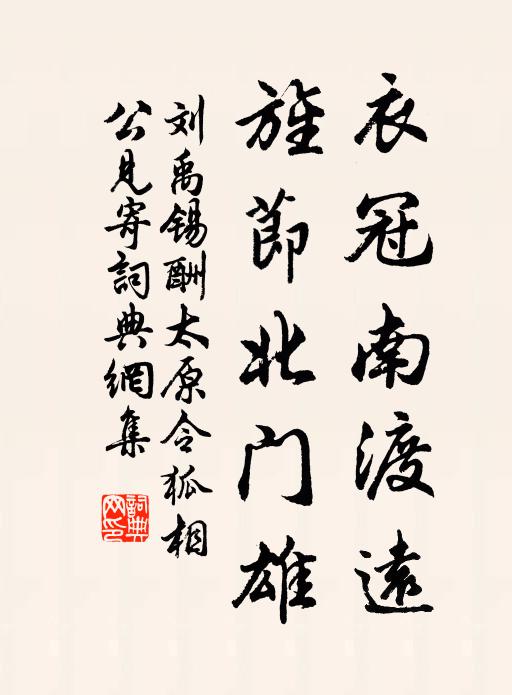 衣冠南渡遠
旌節北门雄
刘禹锡酬太原令狐相
公見寄詞典網集
詞典网印